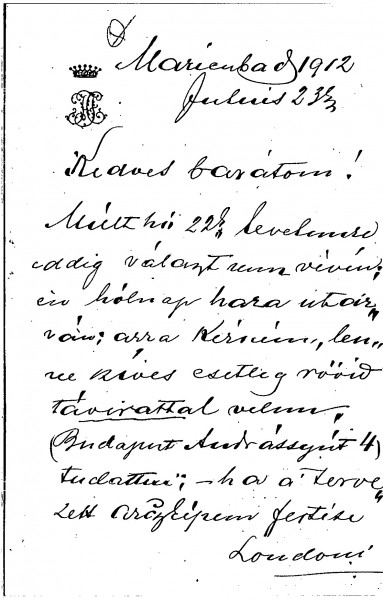 Marienbad 1912
Julius 23ᵃⁿ
Kedves barátom!
Múlt hó 22ᵃⁿ levelemre
eddig választ nem vévén;
én hólnap haza utaz„
ván; arra kérném, len„
ne kives esetleg rövid
távirattal velem,
(Budapest Andrássyút 4)
tudatni; – ha a' terve„
zett arczképem festése
Londoni